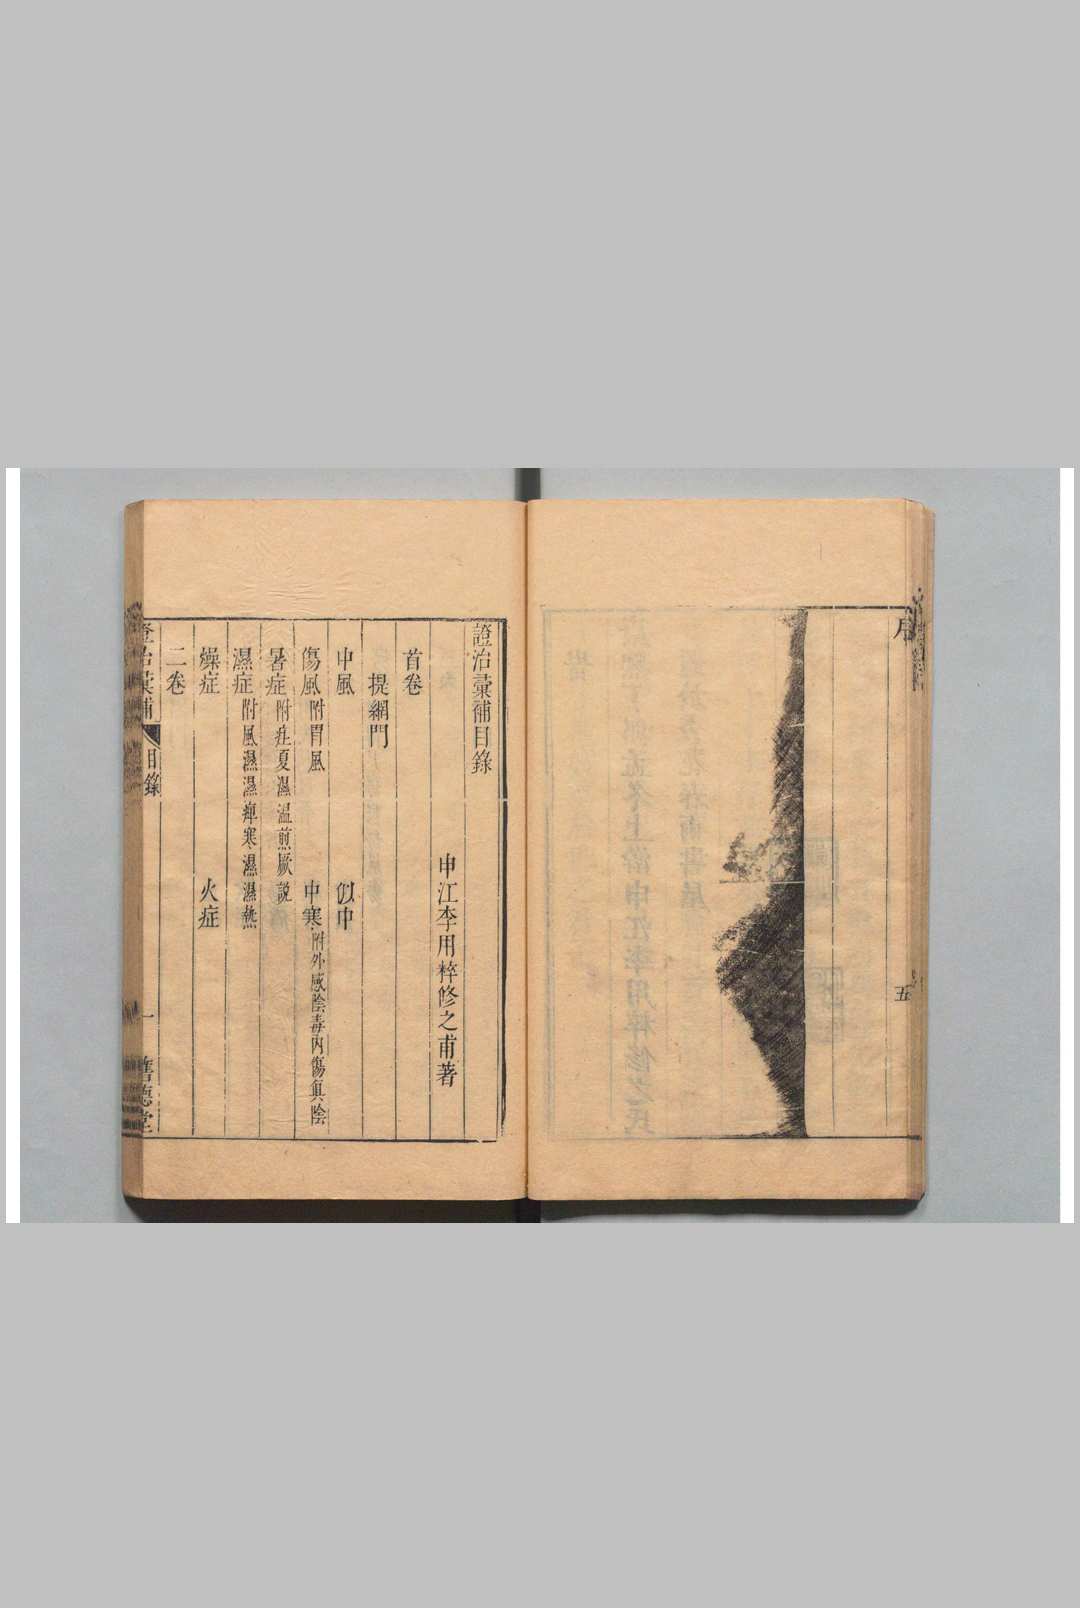 序
五
證治彙補目錄
申江李用粹修之甫著
首卷
提綱門
中風
似中
傷風附胃風
中寒附外感陰毒內傷真陰
暑症附疰夏濕溫煎厥說
濕症附風濕濕痺寒濕濕熱
燥症
火症
二卷
證治彙補
目錄
一